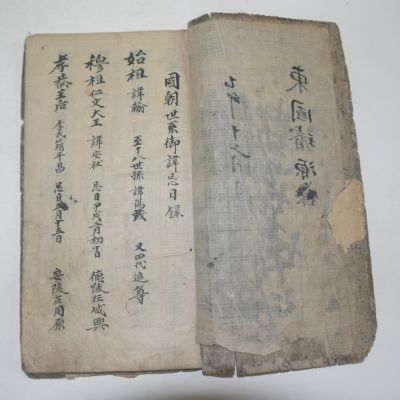 東國璿源錄
國朝世系御諱忌日錄
始祖 諱翰 至十八世孫諱陽茂 又四代追尊
穆祖 仁文大王 諱安社 忌日甲戌三月初十日 德陵在咸興
孝恭王后 李氏籍平昌 忌日五月十五日 安陵在同原